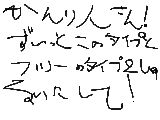 かんり人さん!
ずぃっとこのタイプと
フリーのタイプ2しゅ
るいにして!